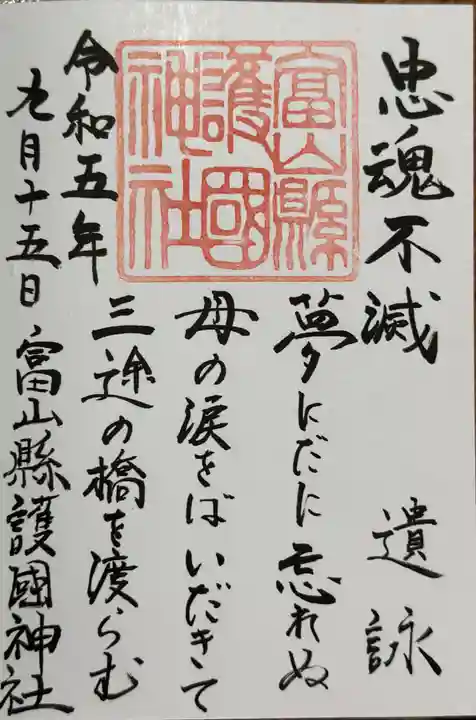 忠魂不滅　遺詠
夢にだに忘れぬ
母の涙をばいだきて
三途の橋を渡らむ
令和五年
九月十五日　富山縣護國神社
富山縣
護國
神社